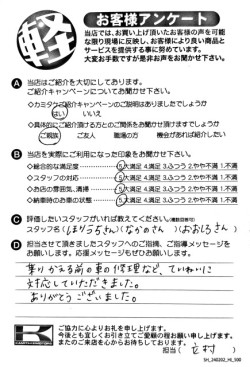 軽
お客様アンケート
当店では、お買い上げ頂いたお客様の声を可能
な限り現場に反映し、お客様により良い商品と
サービスを提供する事に努めています。
大変お手数ですが是非お声をお聞かせ下さい。
A 当店はご紹介を大切にしております。
ご紹介キャンペーンについてお聞かせ下さい。
◇カミタケご紹介キャンペーンのご説明はありましたでしょうか
はい いいえ
◇具体的にご紹介頂ける方とのご関係をお聞かせ頂けますでしょうか
ご親族 ご友人 職場の方 機会があれば紹介したい
B 当店を実際にご利用になった印象をお聞かせ下さい。
◇総合的な満足度 5.大満足 4.満足 3.ふつう 2.やや不満 1.不満
◇スタッフの対応 5.大満足 4.満足 3.ふつう 2.やや不満 1.不満
◇お店の雰囲気、清掃 5.大満足 4.満足 3.ふつう 2.やや不満 1.不満
◇納車時のお車の状態 5.大満足 4.満足 3.ふつう 2.やや不満 1.不満
C 評価したいスタッフがいれば教えてください。(複数回答可)
スタッフ名( さん)( さん)( さん)
D 担当させて頂きましたスタッフへのご指摘、ご応援メッセージを
お願いします。応援メッセージもぜひお願いします。
乗りかえる前の車の修理など、ていねいに
対応していただきました。
ありがとうございました。
ご協力に心よりお礼を申し上げます。
今後とも宜しくお引き立てご愛顧の程お願い申し上げます。
またのご来店を心からお待ちしております。
担当( 村 )
SH_240202_HI_500